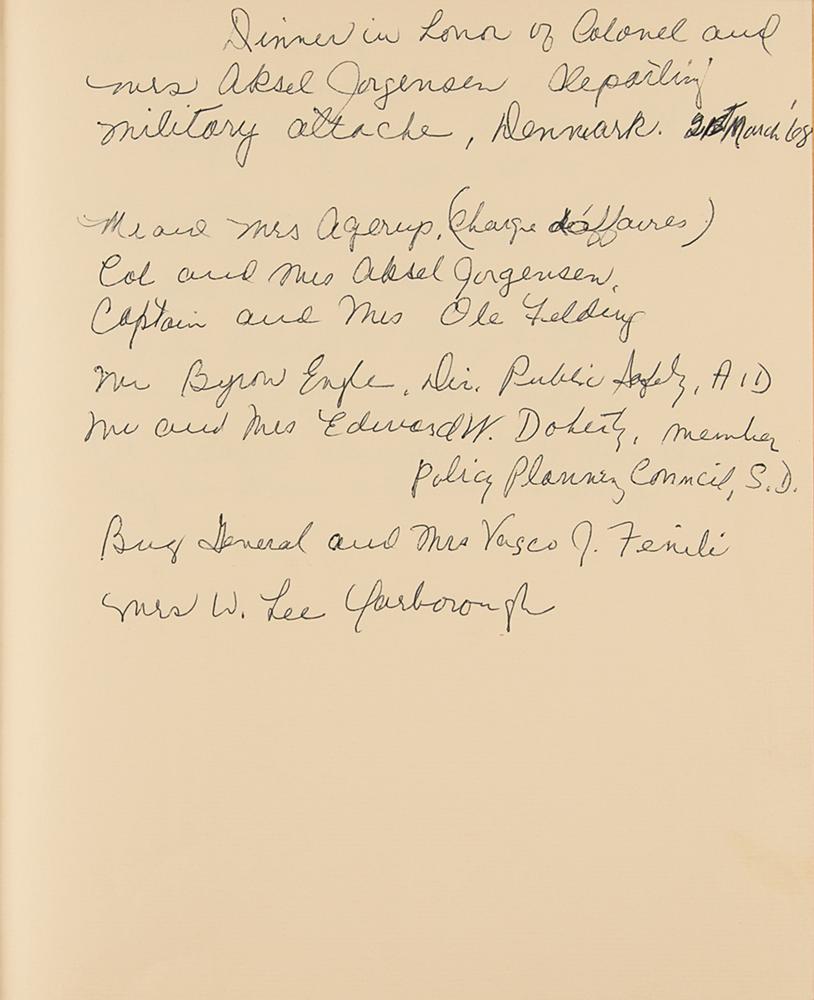 Dinner in honor of Colonel and
Mrs Aksel Jorgensen departing
military attache, Denmark. 21st March '68
Mr and Mrs Agerup, (Charge d'affaires)
Col and Mrs Aksel Jorgensen,
Captain and Mrs Ole Felding
Mr Byron Engle, Dir. Public Safety, AID
Mr and Mrs Edward W. Doherty, member
Policy Planning Council, S.D.
Brig General and Mrs Vasco J. Fenili
Mrs W. Lee Yarborough